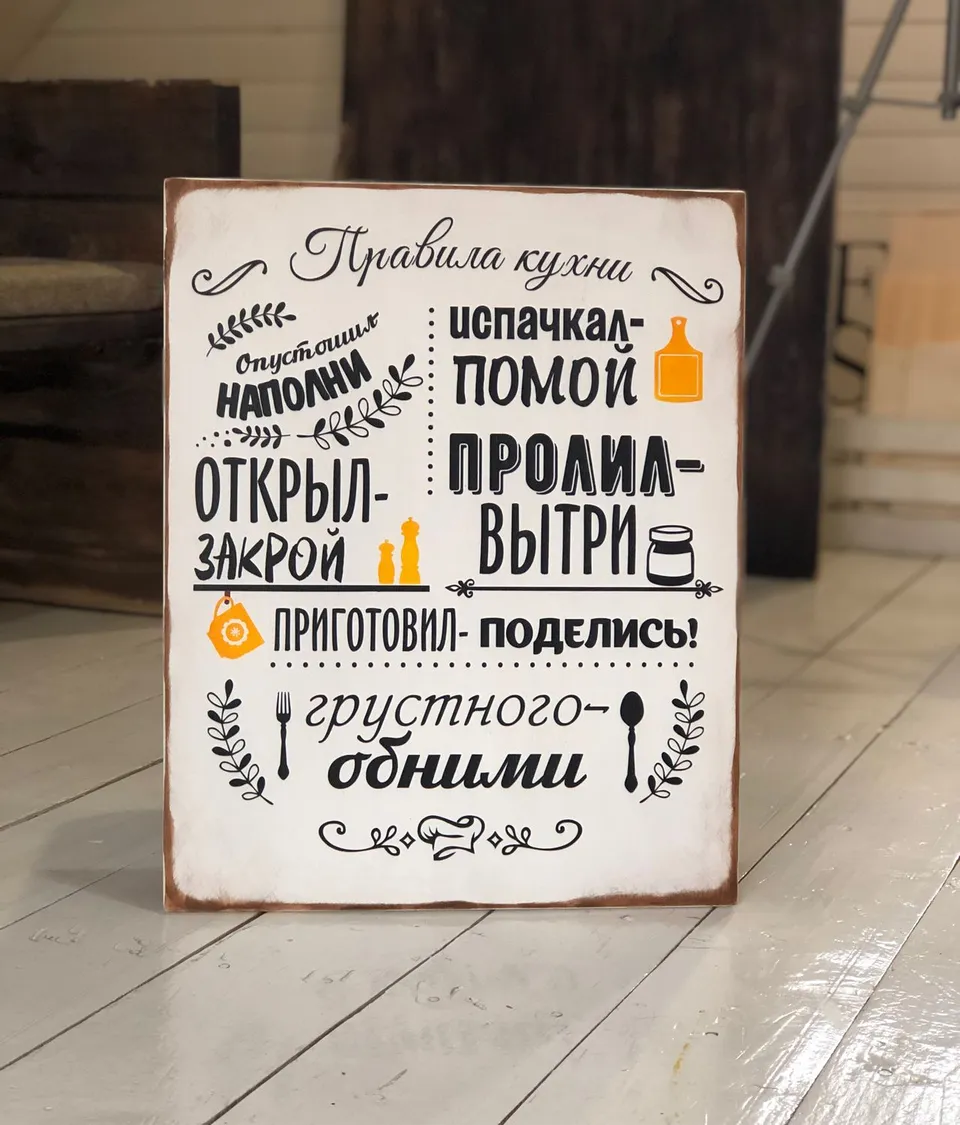 Правила кухни
Опустошил
НАПОЛНИ
ОТКРЫЛ-
ЗАКРОЙ
испачкал-
ПОМОЙ
ПРОЛИЛ-
ВЫТРИ
ПРИГОТОВИЛ- ПОДЕЛИСЬ!
грустного-
обними